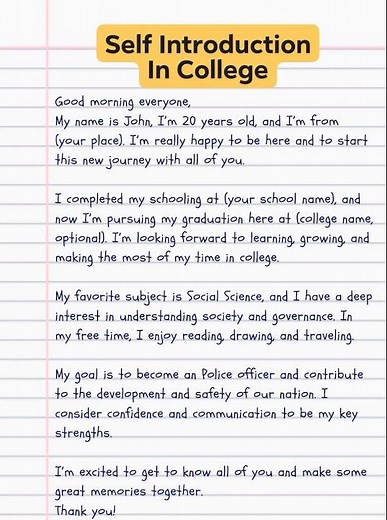 Self Introduction
In College
Good morning everyone,
My name is John, I'm 20 years old, and I'm from
(your place). I'm really happy to be here and to start
this new journey with all of you.
I completed my schooling at (your school name), and
now I'm pursuing my graduation here at (college name,
optional). I'm looking forward to learning, growing, and
making the most of my time in college.
My favorite subject is Social Science, and I have a deep
interest in understanding society and governance. In
my free time, I enjoy reading, drawing, and traveling.
My goal is to become an Police officer and contribute
to the development and safety of our nation. I
consider confidence and communication to be my key
strengths.
I'm excited to get to know all of you and make some
great memories together.
Thank you!